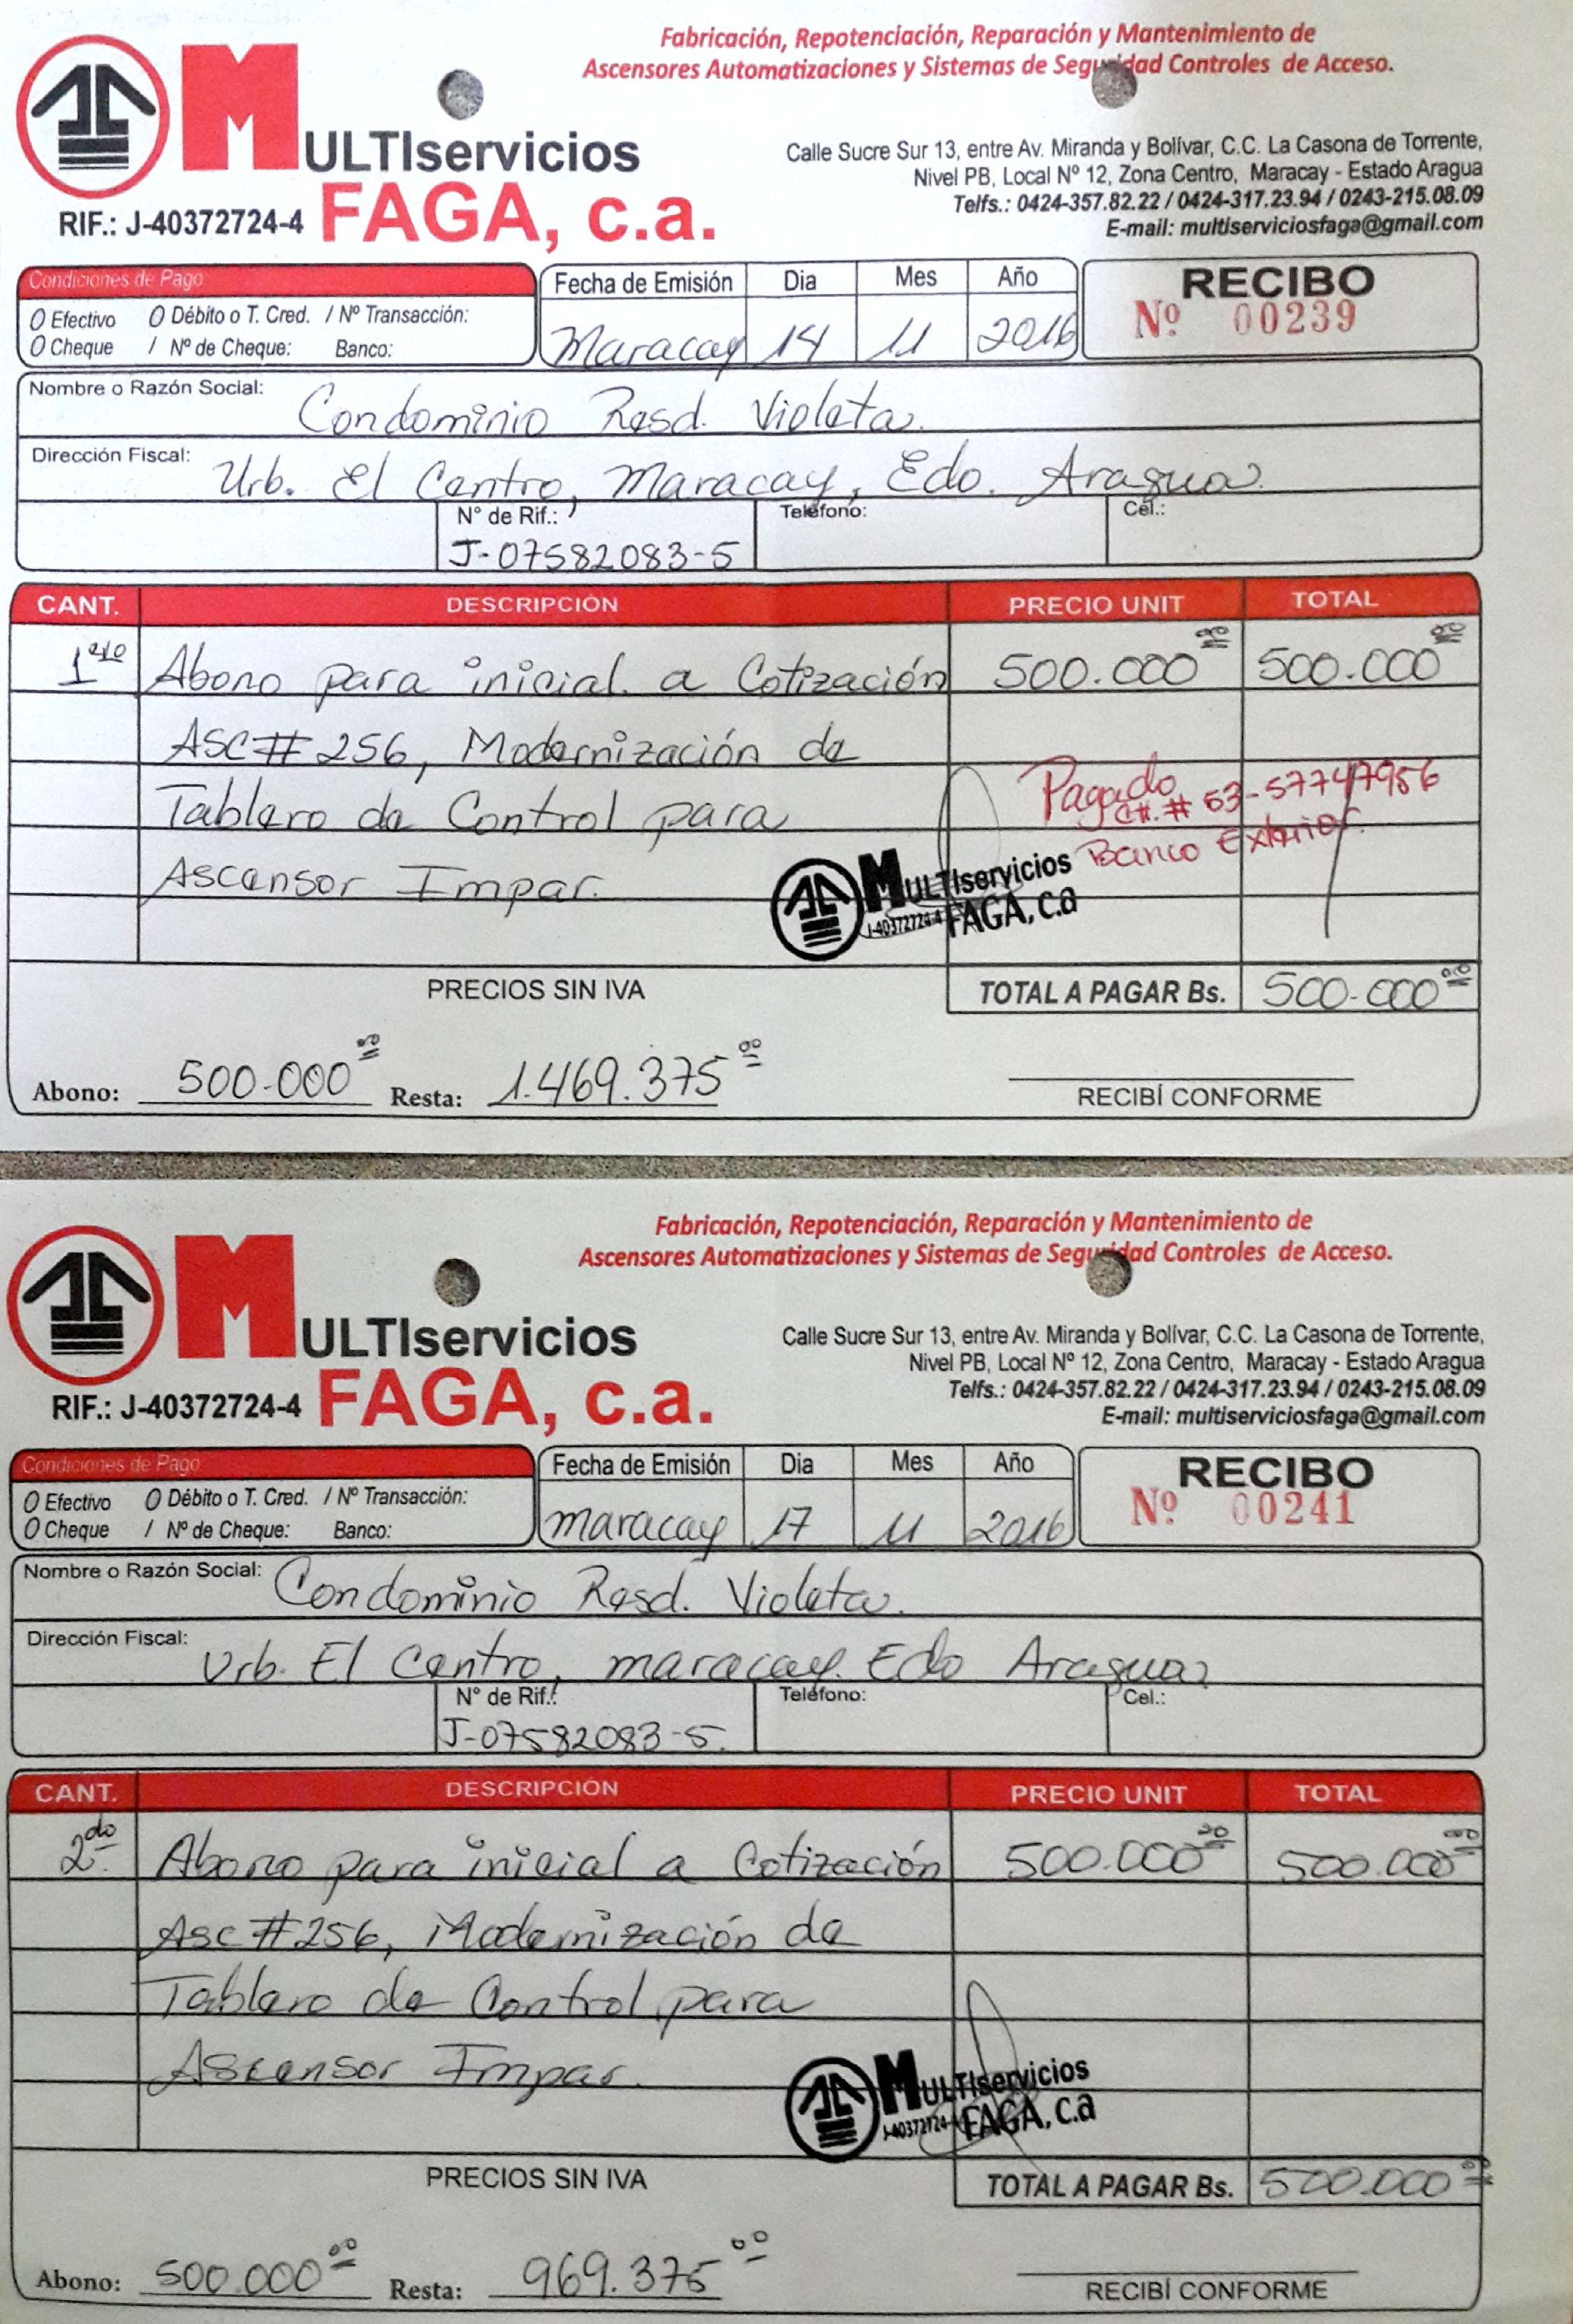 Fabricación, Repotenciación, Reparación y Mantenimiento de
Ascensores Automatizaciones y Sistemas de Seguridad Controles de Acceso.
MULTIservicios
FAGA, c.a.
RIF.: J-40372724-4
Calle Sucre Sur 13, entre Av. Miranda y Bolívar, C.C. La Casona de Torrente,
Nivel PB, Local Nº 12, Zona Centro, Maracay - Estado Aragua
Telfs.: 0424-357.82.22 / 0424-317.23.94 / 0243-215.08.09
E-mail: multiserviciosfaga@gmail.com
Condiciones de Pago
O Efectivo O Débito o T. Cred. / Nº Transacción:
O Cheque / Nº de Cheque: Banco:
Fecha de Emisión Dia Mes Año
Maracay 14 11 2016
RECIBO
Nº 00239
Nombre o Razón Social: Condominio Resd. Violeta.
Dirección Fiscal: Urb. El Centro, Maracay, Edo. Aragua.
N° de Rif.: Teléfono: Cel.:
J-07582083-5
CANT. DESCRIPCIÓN PRECIO UNIT TOTAL
1ero Abono para inicial a Cotización 500.000 00 500.000 00
ASC # 256, Modernización de
Tablero de Control para
Ascensor Impar.
Pagado
CH. # 63-57747956
Banco Exterior.
MULTIservicios
J-40372724-4 FAGA, c.a
PRECIOS SIN IVA TOTAL A PAGAR Bs. 500.000 00
Abono: 500.000 00 Resta: 1.469.375 00
RECIBÍ CONFORME
Fabricación, Repotenciación, Reparación y Mantenimiento de
Ascensores Automatizaciones y Sistemas de Seguridad Controles de Acceso.
MULTIservicios
FAGA, c.a.
RIF.: J-40372724-4
Calle Sucre Sur 13, entre Av. Miranda y Bolívar, C.C. La Casona de Torrente,
Nivel PB, Local Nº 12, Zona Centro, Maracay - Estado Aragua
Telfs.: 0424-357.82.22 / 0424-317.23.94 / 0243-215.08.09
E-mail: multiserviciosfaga@gmail.com
Condiciones de Pago
O Efectivo O Débito o T. Cred. / Nº Transacción:
O Cheque / Nº de Cheque: Banco:
Fecha de Emisión Dia Mes Año
maracay 17 11 2016
RECIBO
Nº 00241
Nombre o Razón Social: Condominio Resd. Violeta.
Dirección Fiscal: Urb. El Centro, maracay. Edo Aragua
N° de Rif.: Teléfono: Cel.:
J-07582083-5.
CANT. DESCRIPCIÓN PRECIO UNIT TOTAL
2do. Abono para inicial a Cotización 500.000 00 500.000 00
Asc # 256, Modernización de
Tablero de Control para
Ascensor Impar.
MULTIservicios
J-40372724-4 FAGA, c.a
PRECIOS SIN IVA TOTAL A PAGAR Bs. 500.000 00
Abono: 500.000 00 Resta: 969.375 00
RECIBÍ CONFORME